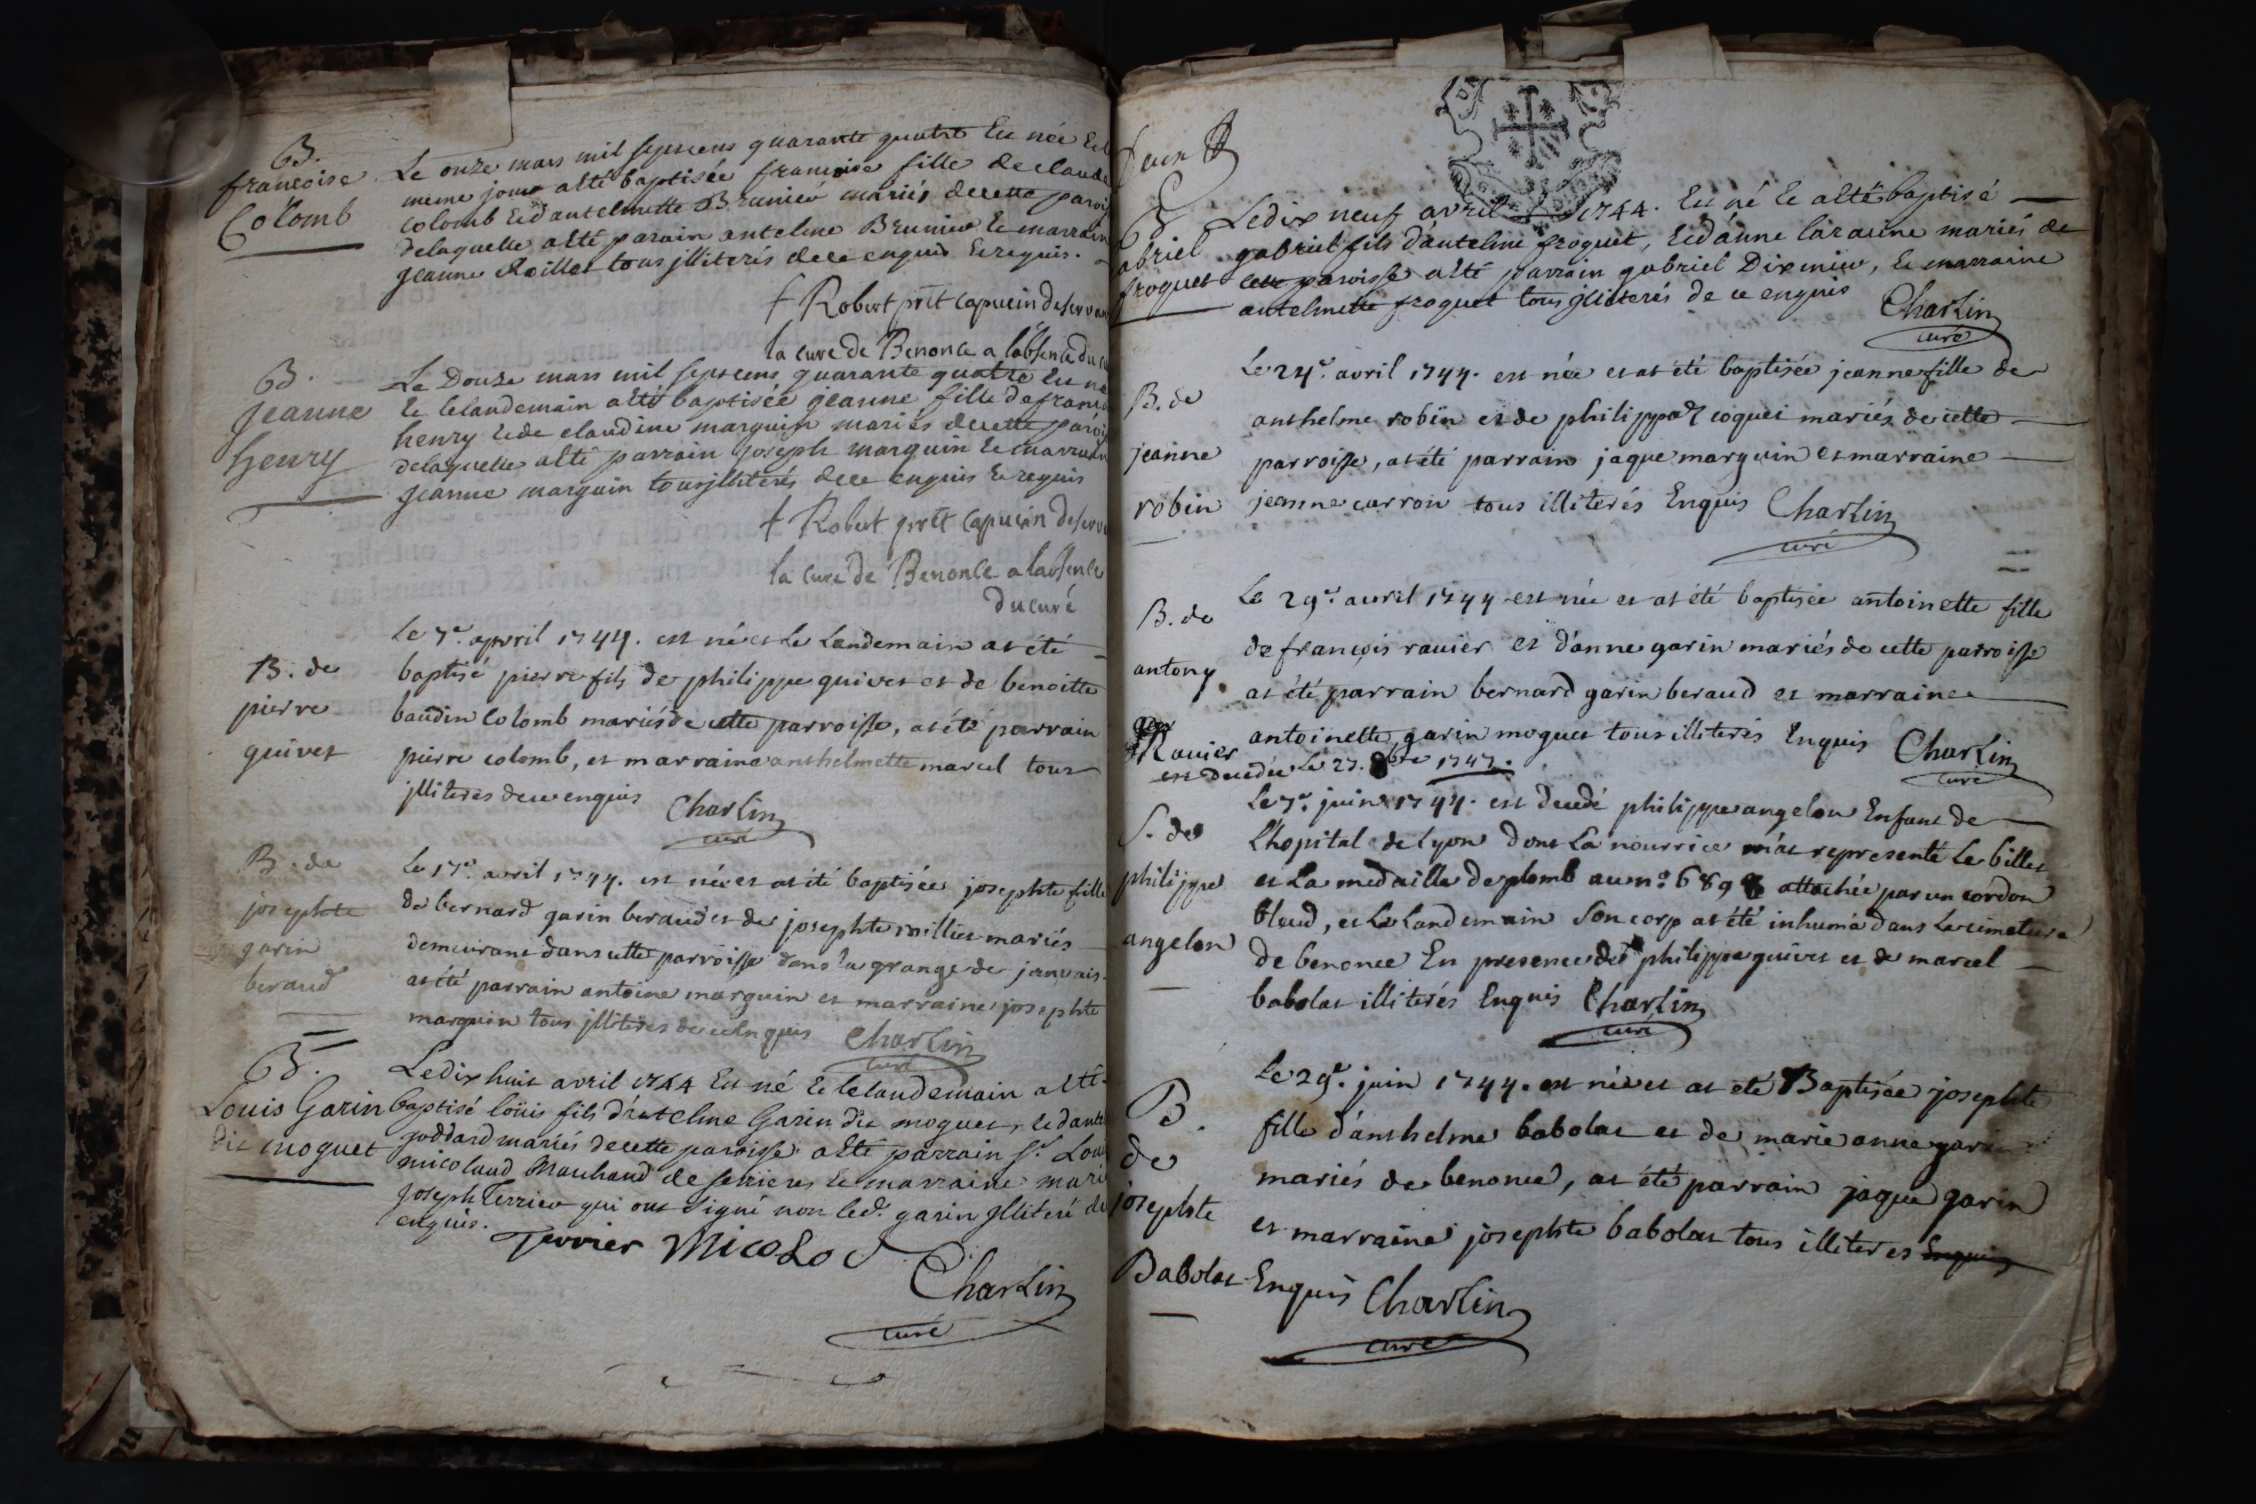 B.
francoise
Colomb
Le onze mars mil septcens quarante quatre Est née Et
meme jour até baptisée francoise fille de claude
colomb Et d'antelmette Brunier mariés decette parois
delaquelle aété parain anteline Brunier Et marraine
jeanne Roillet tous jlliterés dece enquis Erequis.
f Robert prêt capucin deserva
la cure de Benonce a l'absence du cu
B.
jeanne
henry
Le Douze mars mil septcens quarante quatre Est né
Et lelandemain aété baptisée jeanne fille de franc
henry Et de claudine marguin mariés decette parois
delaquelle aété parrain joseph marguin Et marraine
jeanne marguin tous jlliterés dece enquis Erequis
f Robert prêt capucin deserva
la cure de Benonce a labsence
du curé
B. de
pierre
quivet
Le 7e. apvril 1744. est né et le Landemain at été
baptisé pierre fils de philippe quivet et de benoitte
baudin colomb mariés de cette parroisse, at été parrain
pierre colomb, et marraine anthelmette marcel tous
jlliteres de ce enquis Charlin
curé
B. de
josephte
garin
beraud
Le 17e. avril 1744. est née et at été baptisée josephte fille
de bernard garin beraud et de josephte millict mariés
demeurant dans cette parroisse dans la grange de janvais
at été parrain antoine marguin et marraine josephte
marguin tous jlliteres de ce Enquis Charlin
curé
B.
Louis Garin
dit moguet
Ledix huit avril 1744 Est né Et lelandemain a été
baptisé loüis fils d'anteline Garin dit moguet, Et d'ante
goddard mariés decette paroisse aété parrain Sr. Loui
micoland Marchand de serrieres Et marraine marie
joseph Terrier qui ont signé non led. garin jlliteré de
enquis.
Terrier Micolod
Charlin
curé
B
abriel
froquet
Ledix neuf avril 1744. Est né Et aété baptisé
gabriel fils d'anteline froquet, Et d'anne laraune mariés de
cette paroisse aété parrain gabriel Dixmier, Et marraine
antelmette froquet tous jlliterés de ce enquis
Charlin
curé
B. de
jeanne
robin
Le 24e. avril 1744. est née et at été baptisée jeanne fille de
anthelme robin et de philippa coquei mariés de cette
parroisse, at été parrain jaque marguin et marraine
jeanne carron tous illiterés Enquis Charlin
curé
B. de
antony
Ravier
est decedée le 27. 8bre 1747.
Le 29e. avril 1744 est née et at été baptisée antoinette fille
de françois ravier et d'anne garin mariés de cette parroisse
at été parrain bernard garin beraud et marraine
antoinette garin moguet tous illiterés Enquis Charlin
curé
S. de
philippe
angelon
Le 7e. juin 1744. est decedé philippe angelon Enfant de
L'hopital de Lyon dont La nourrice m'at representé Le billet
et La medaille de plomb au no. 689 attachée par un cordon
bleud, et Le Landemain son corp at été inhumé dans Le cimetiere
de benonce En presence de philippe quivet et de marcel
babolat illiterés Enquis Charlin
curé
B.
de
josephte
Babolat
Le 29e. juin 1744. est née et at été Baptisée josephte
fille d'anthelme babolat et de marie anne garin
mariés de benonce, at été parrain jaque garin
et marraine josephte babolat tous illiteres Enquis
Enquis Charlin
curé